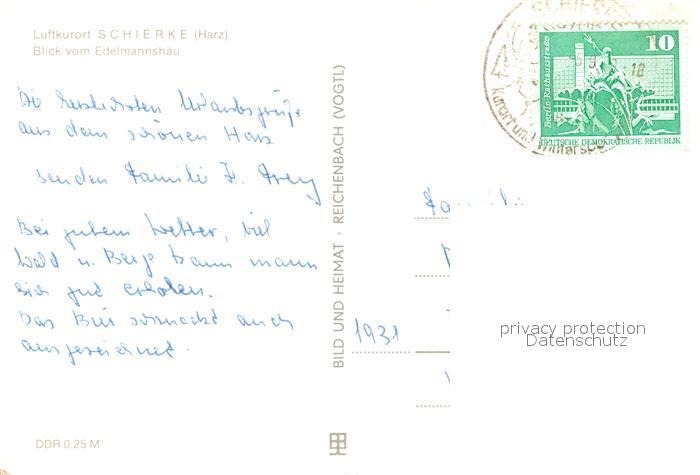 Luftkurort SCHIERKE (Harz)
Blick vom Edelmannshau
Die herzlichsten Urlaubsgrüße
aus dem schönen Harz
senden Familie H. Frey
Bei gutem Wetter, viel
Wald u. Berge kann mann
sich gut erholen.
Das Bier schmeckt auch
ausgezeichnet.
DDR 0,25 M
BILD UND HEIMAT · REICHENBACH (VOGTL)
SCHIERKE
18
Kurort und Wintersp
10
Berlin-Rathausstraße
DEUTSCHE DEMOKRATISCHE REPUBLIK
1931
privacy protection
Datenschutz